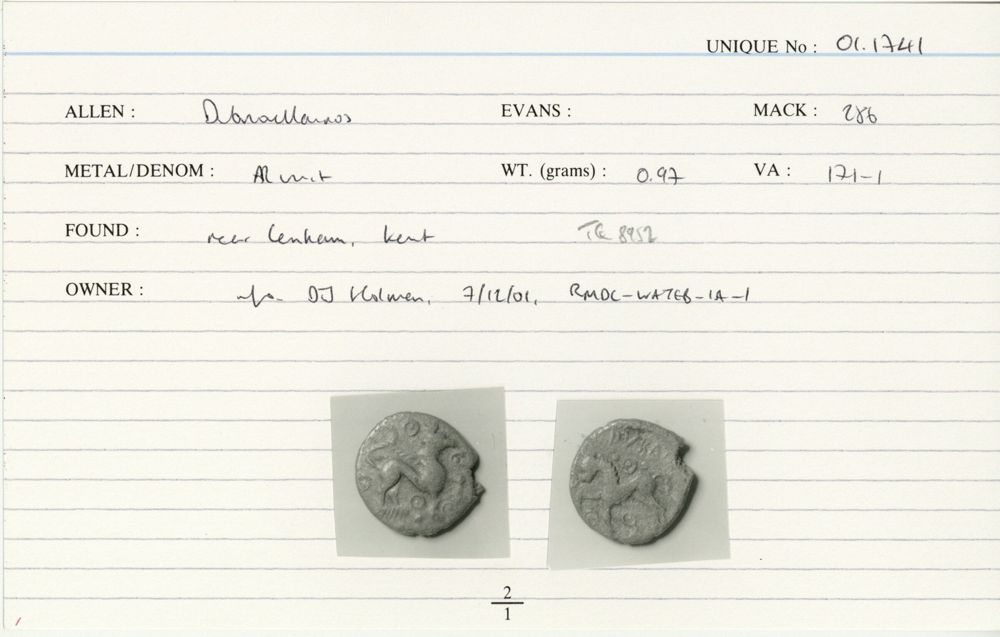 UNIQUE No : 01.1741
ALLEN : Dubnovellaunos EVANS : MACK : 286
METAL/DENOM : AR unit WT. (grams) : 0.97 VA : 171-1
FOUND : near Lenham, Kent TQ 8952
OWNER : DJ Holman, 7/12/01, RMDC-WATEB-IA-1
2
1